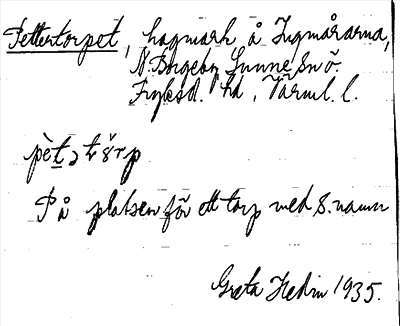 Pettertorpet, hagmark å Ingmårarna,
N. Borgeby, Sunne sn ö.
Fryksd. hd, Värml. l.
På platsen för ett torp med s. namn
Greta Hedin 1935.